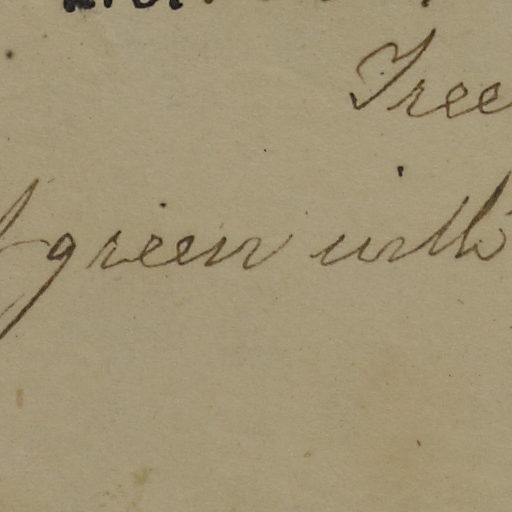 Tree
green with